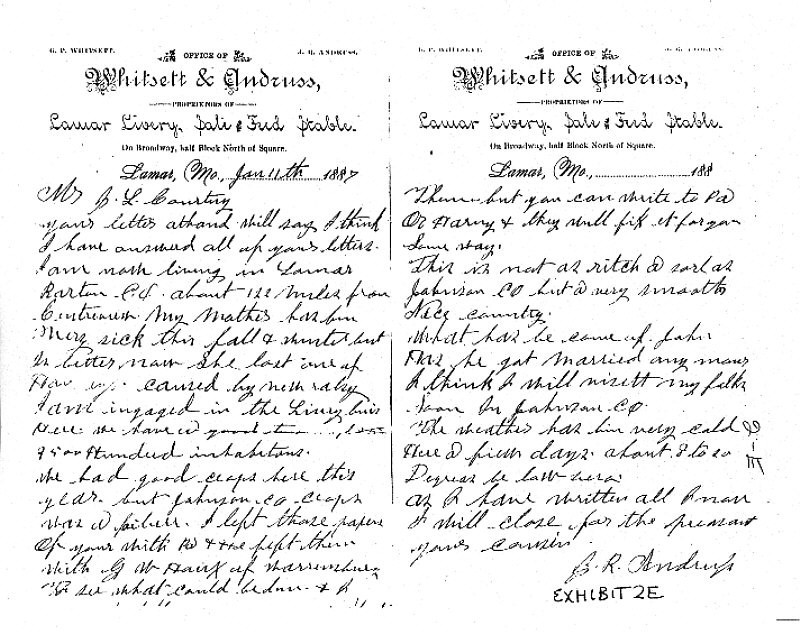 G. P. WHITSETT. OFFICE OF J. R. ANDRUSS.
Whitsett & Andruss,
PROPRIETORS OF
Lamar Livery, Sale & Feed Stable.
On Broadway, half Block North of Square.
Lamar, Mo., Jan 11th 1887
Mr J. L Courtny
yours letter athand will say I think
I have answered all of yours letters.
I am now living in Lamar
Barton C.O. about 122 miles from
My Mother has bin
Very sick this fall & winter but
is better now she lost one of
caused by
I am engaged in the Livery
Here we have a good
Hundred inhabitons.
We had good crops here this
year but Johnson co crops
was a I left those papers
Of yours with Pa & He left them
with G W Houx of Warrensburg
To see what could bedone &
G. P. WHITSETT. OFFICE OF
Whitsett & Andruss,
PROPRIETORS OF
Lamar Livery, Sale & Feed Stable.
On Broadway, half Block North of Square.
Lamar, Mo., 188
Them but you can write to Pa
Or Harvy & they will fix it for you
Some way.
This is not as ritch a soil as
Johnson CO but a very smooth
Nice country.
What has be come of John
Has he got Married any more
I think I will visett my folks
Soon In Johnson CO
The weather has bin very cold
Here a few days about 8 to 20
Degres be low zero
as I have written all I now
I will close for the presant
yours cousin
J. R. Andruss
EXHIBIT 2E